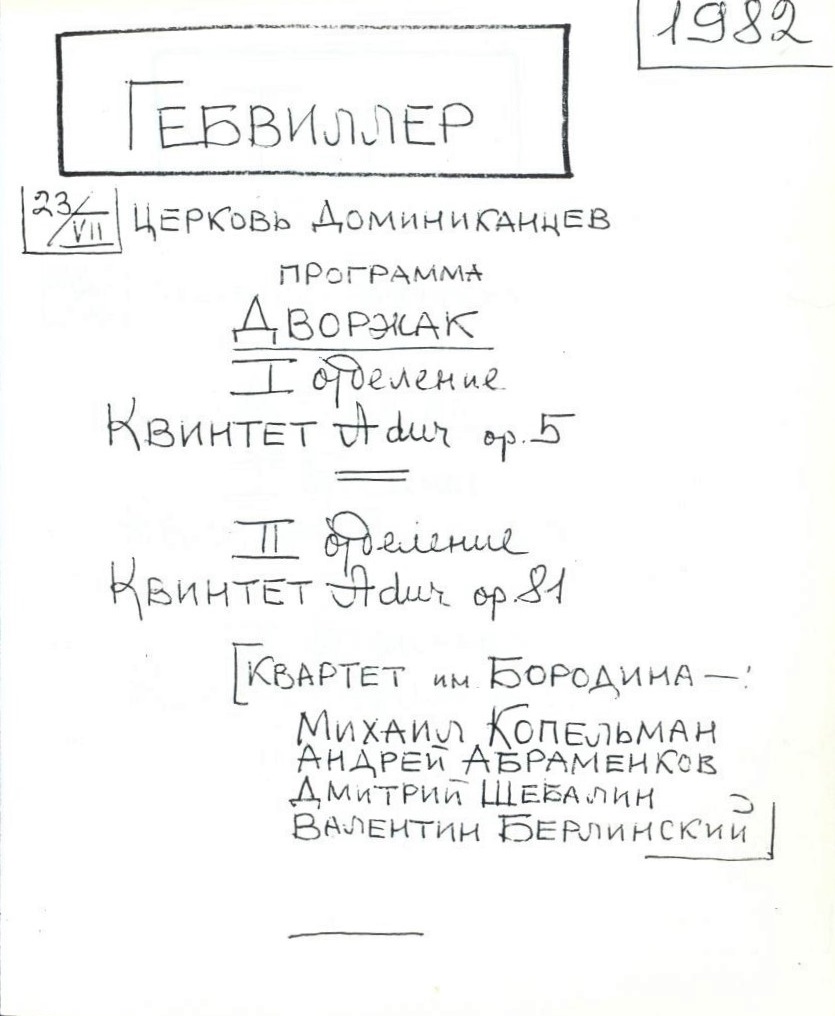 1982
ГЕБВИЛЛЕР
23/VII ЦЕРКОВЬ ДОМИНИКАНЦЕВ
ПРОГРАММА
ДВОРЖАК
I отделение
КВИНТЕТ A dur op. 5
II отделение
КВИНТЕТ A dur op. 81
[КВАРТЕТ им. БОРОДИНА —:
МИХАИЛ КОПЕЛЬМАН
АНДРЕЙ АБРАМЕНКОВ
ДМИТРИЙ ШЕБАЛИН
ВАЛЕНТИН БЕРЛИНСКИЙ]